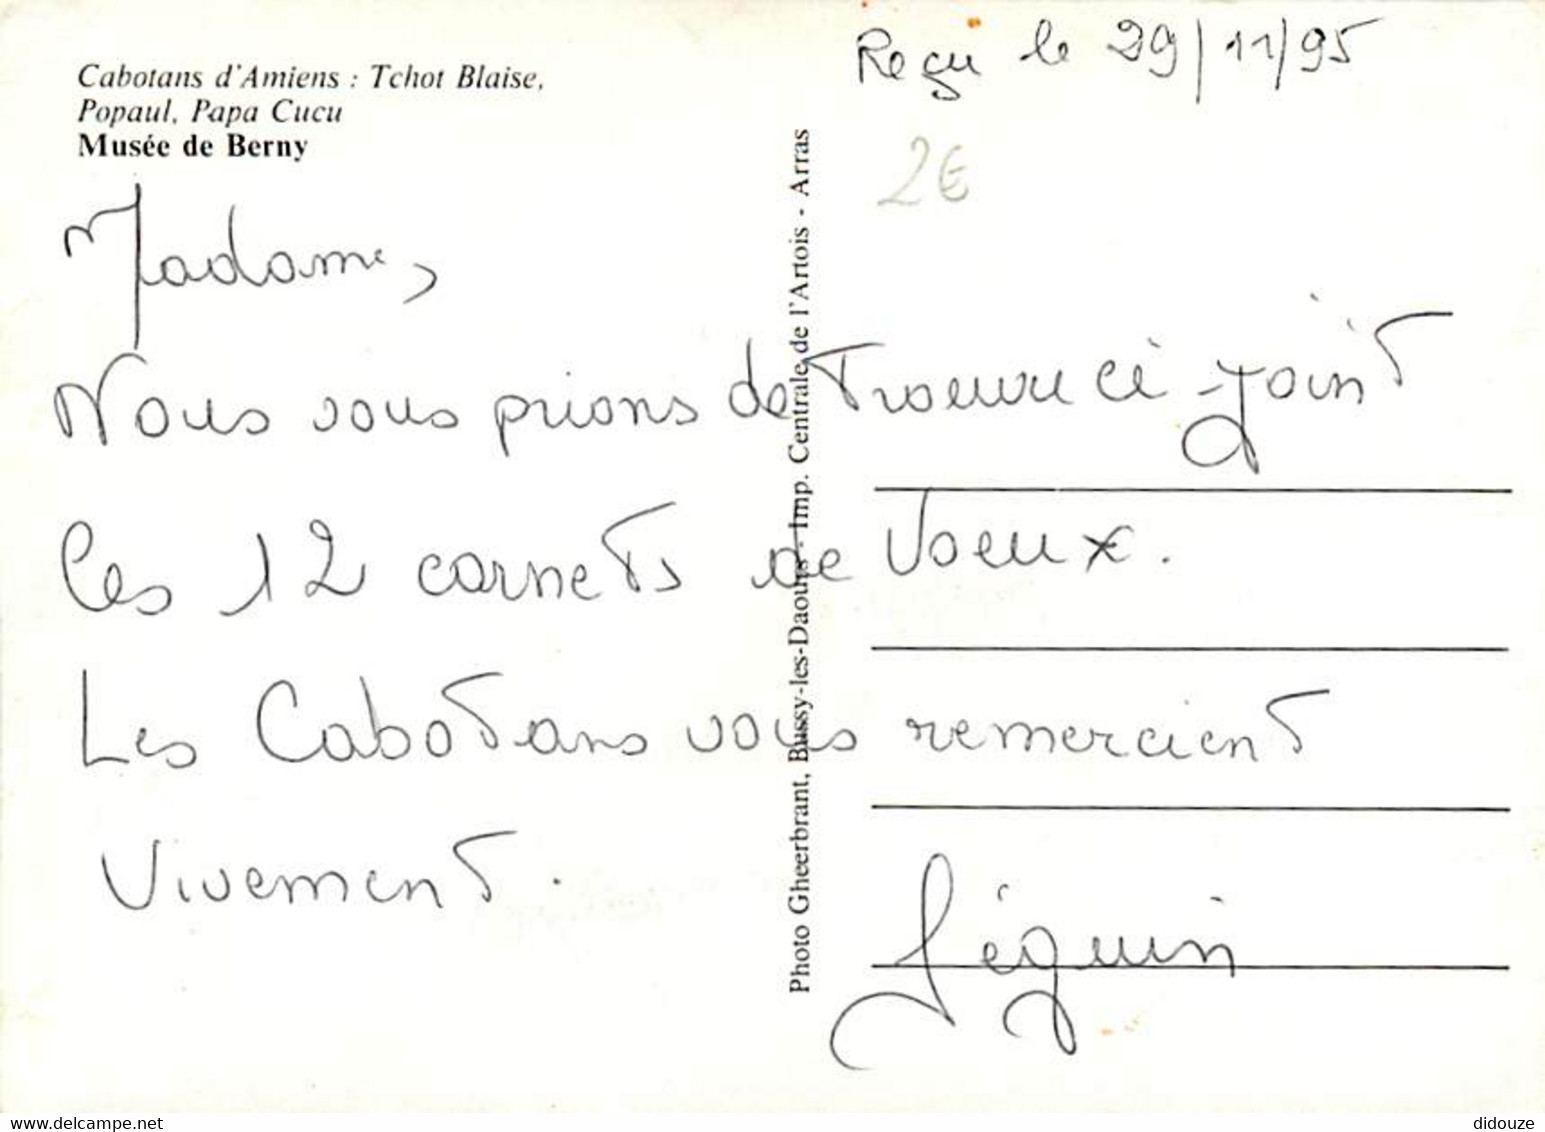 Cabotans d'Amiens : Tchot Blaise,
Popaul, Papa Cucu
Musée de Berny
Reçu le 29/11/95
2€
Photo Gheerbrant, Bussy-les-Daours - Imp. Centrale de l'Artois - Arras
Madame,
Nous vous prions de trouver ci-joint
les 12 carnets de voeux.
Les Cabotans vous remercient
Vivement.
Séguin
didouze